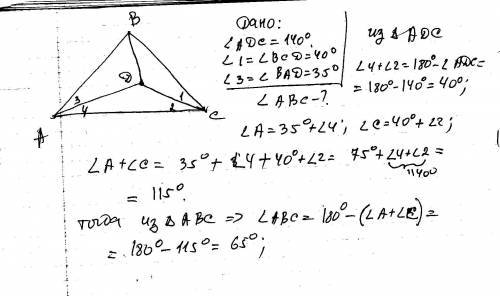 B
D
A
C
3
4
1
2
Дано:
∠ADC = 140°
∠1 = ∠BCD = 40°
∠3 = ∠BAD = 35°
∠ABC - ?
из △ ADC
∠4+∠2 = 180° - ∠ADC =
= 180° - 140° = 40°;
∠A = 35° + ∠4; ∠C = 40° + ∠2;
∠A + ∠C = 35° + ∠4 + 40° + ∠2 = 75° + ∠4 + ∠2 =
= 115°.
тогда из △ ABC => ∠ABC = 180° - (∠A + ∠C) =
= 180° - 115° = 65°;